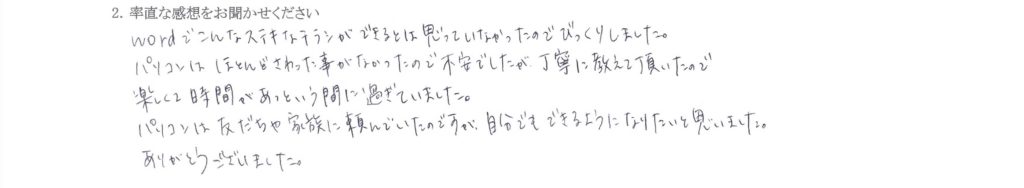 2. 率直な感想をお聞かせください
wordでこんなステキなチラシができるとは思っていなかったのでびっくりしました。
パソコンは ほとんどさわった事がなかったので不安でしたが、丁寧に教えて頂いたので
楽しくて時間があっという間に過ぎていました。
パソコンは友だちや家族に頼んでいたのですが、自分でもできるようになりたいと思いました。
ありがとうございました。